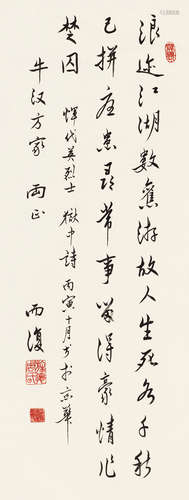 浪迹江湖数旧游故人生死各千秋
已拼忧患寻常事留得豪情作
楚囚 恽代英烈士狱中诗 丙寅十月书于京华
牛汉方家两正
而复